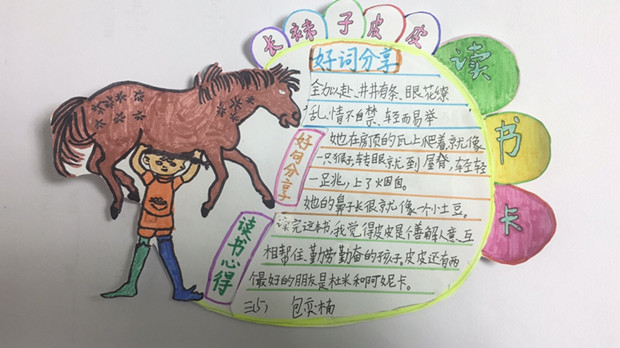 长袜子皮皮
读书卡
好词分享
全力以赴、井井有条、眼花缭
乱、情不自禁、轻而易举
好词分享
她在房顶的瓦上爬着,就像
一只猴子,转眼就到屋脊,轻轻
一足兆,上了烟囱。
她的鼻子长很就像个小土豆。
读书心得
读完这本书,我觉得皮皮是个善解人意、互
相帮住、勤劳勤奋的孩子,皮皮还有两
个最好的朋友是杜米和阿妮卡。
三(5) 包奕楠